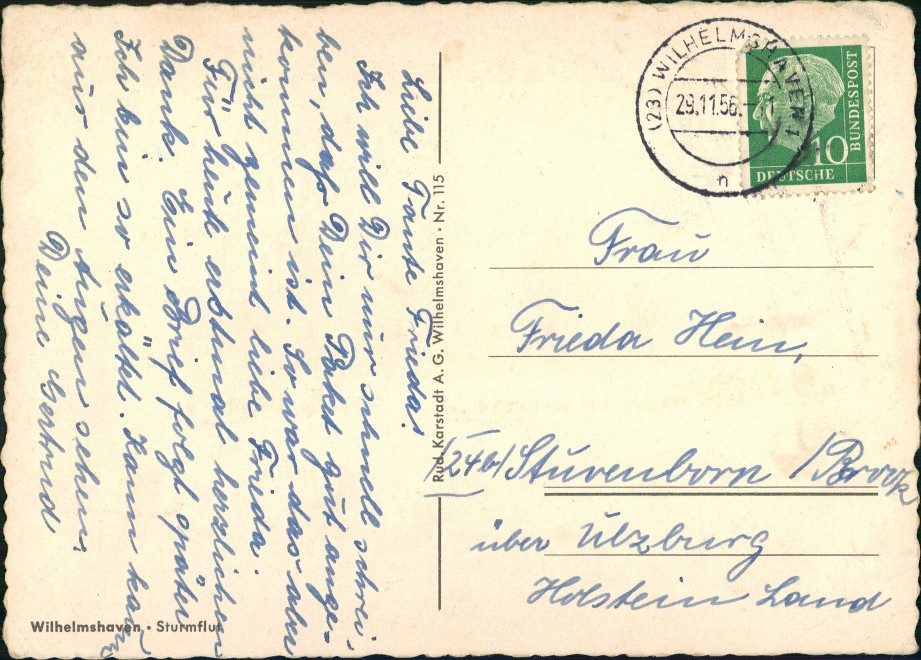 Liebe Tante Frieda!
Ich will Dir nur schnell schrei-
ben, daß Dein Paket gut ange-
kommen ist. So war das aber
nicht gemeint liebe Frieda.
Für heute erstmal herzlichen
Dank. Ein Brief folgt später
Ich bin so erkältet. Kann kaum
aus den Augen sehen.
Deine Gertrud
Wilhelmshaven · Sturmflut
Rud. Karstadt A. G. Wilhelmshaven · Nr. 115
(23) WILHELMSHAVEN 1
29.11.56.
n
10
DEUTSCHE
BUNDESPOST
Frau
Frieda Hein,
/24b/ Stuvenborn /Brook
über Ulzburg
Holstein Land